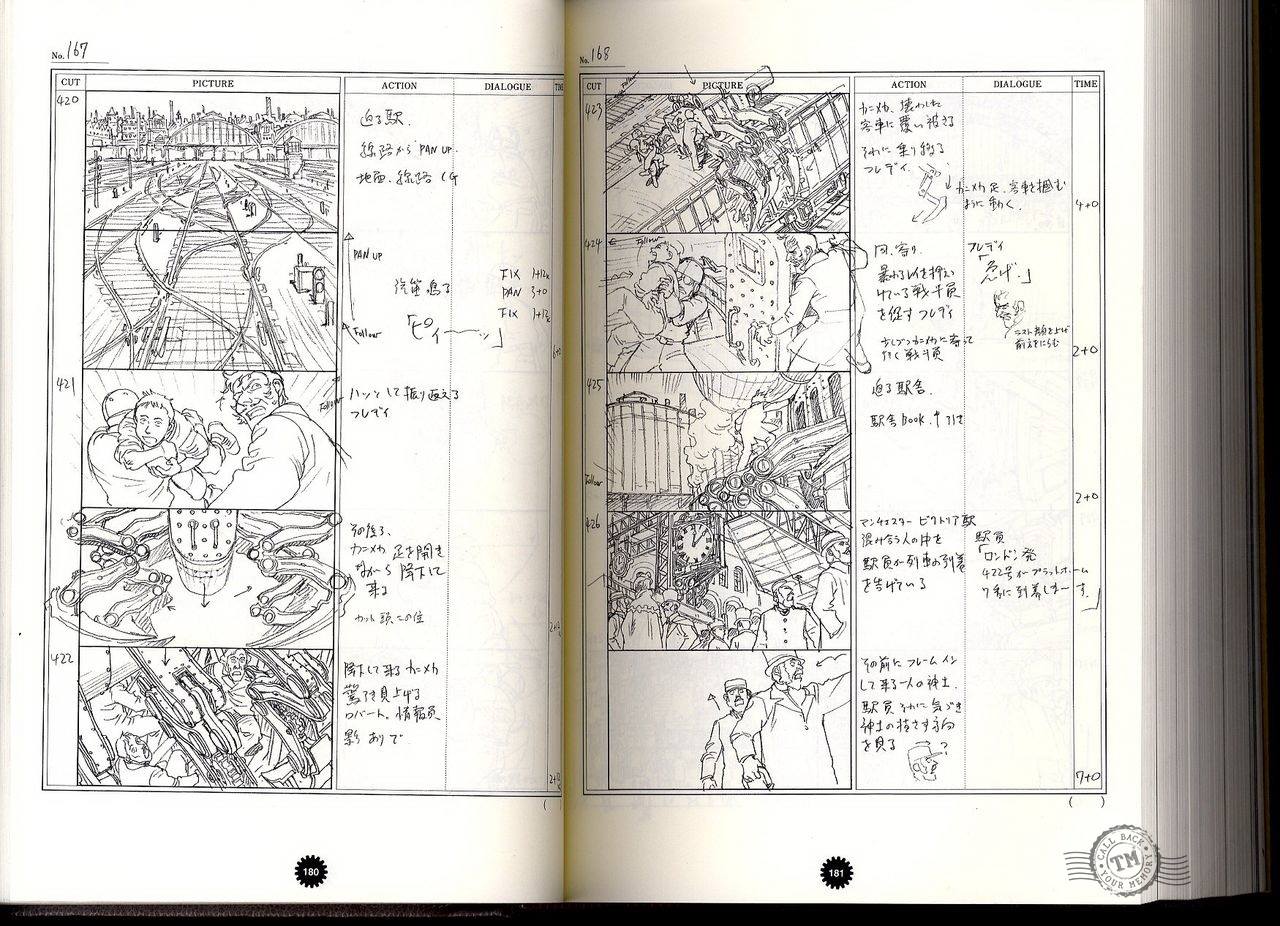 No. 167
CUT PICTURE ACTION DIALOGUE
420
迫る駅.
線路から PAN UP.
地面、線路 CG
PAN UP
汽笛鳴る
「ピィーーッ」
FIX 1+12
PAN 3+0
FIX 1+12
Follow
421
ハッとして振り返える
フレディ
Follow
その後ろ、
カニメカ 足を開き
ながら 降下して
来る
カット頭この位
422
降下して来るカニメカ
驚き見上げる
ロバート。情報員
影 ありで
180
No. 168
CUT PICTURE ACTION DIALOGUE TIME
423
Follow
カニメカ、壊わした
客車に覆い被さる
それに乗り移る
フレディ
カニメカ足、客車を掴む
ように動く.
4+0
424
Follow
同、寄り.
暴れるレイを押え
けている戦斗員
を促す フレディ
フレディ
2+0
425
迫る駅舎.
駅舎 BOOK. ↑引き
Follow
2+0
426
マンチェスター ビクトリア駅
混み合う人の中を
駅員が列車の到着
を告げている
駅員
「ロンドン発
422号がプラットホーム
7番に到着しまーす.」
その前に フレームイン
して来る一人の紳士.
駅員 それに気づき
紳士の指さす方向
を見る
?
7+0
( )
181
CALL BACK
TM
YOUR MEMORY